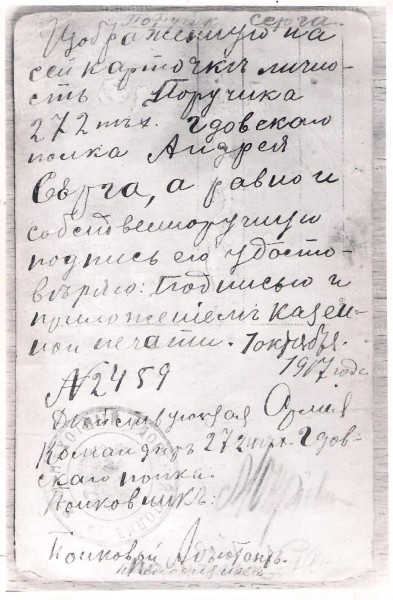 Поручик Серга.
Изображенную на
сей карточкѣ лично-
сть Поручика
272 пѣх. Гдовскаго
полка Андрея
Сѣрга, а равно и
собственноручную
подпись его удосто-
вѣряю: Подписью и
приложеніемъ казен-
ной печати. 7 октября.
1917 года
№2459
Дѣйствующая Армія
Командиръ 272 пѣх. Гдов-
скаго полка.
Полковникъ:
Полковой Адъютантъ.